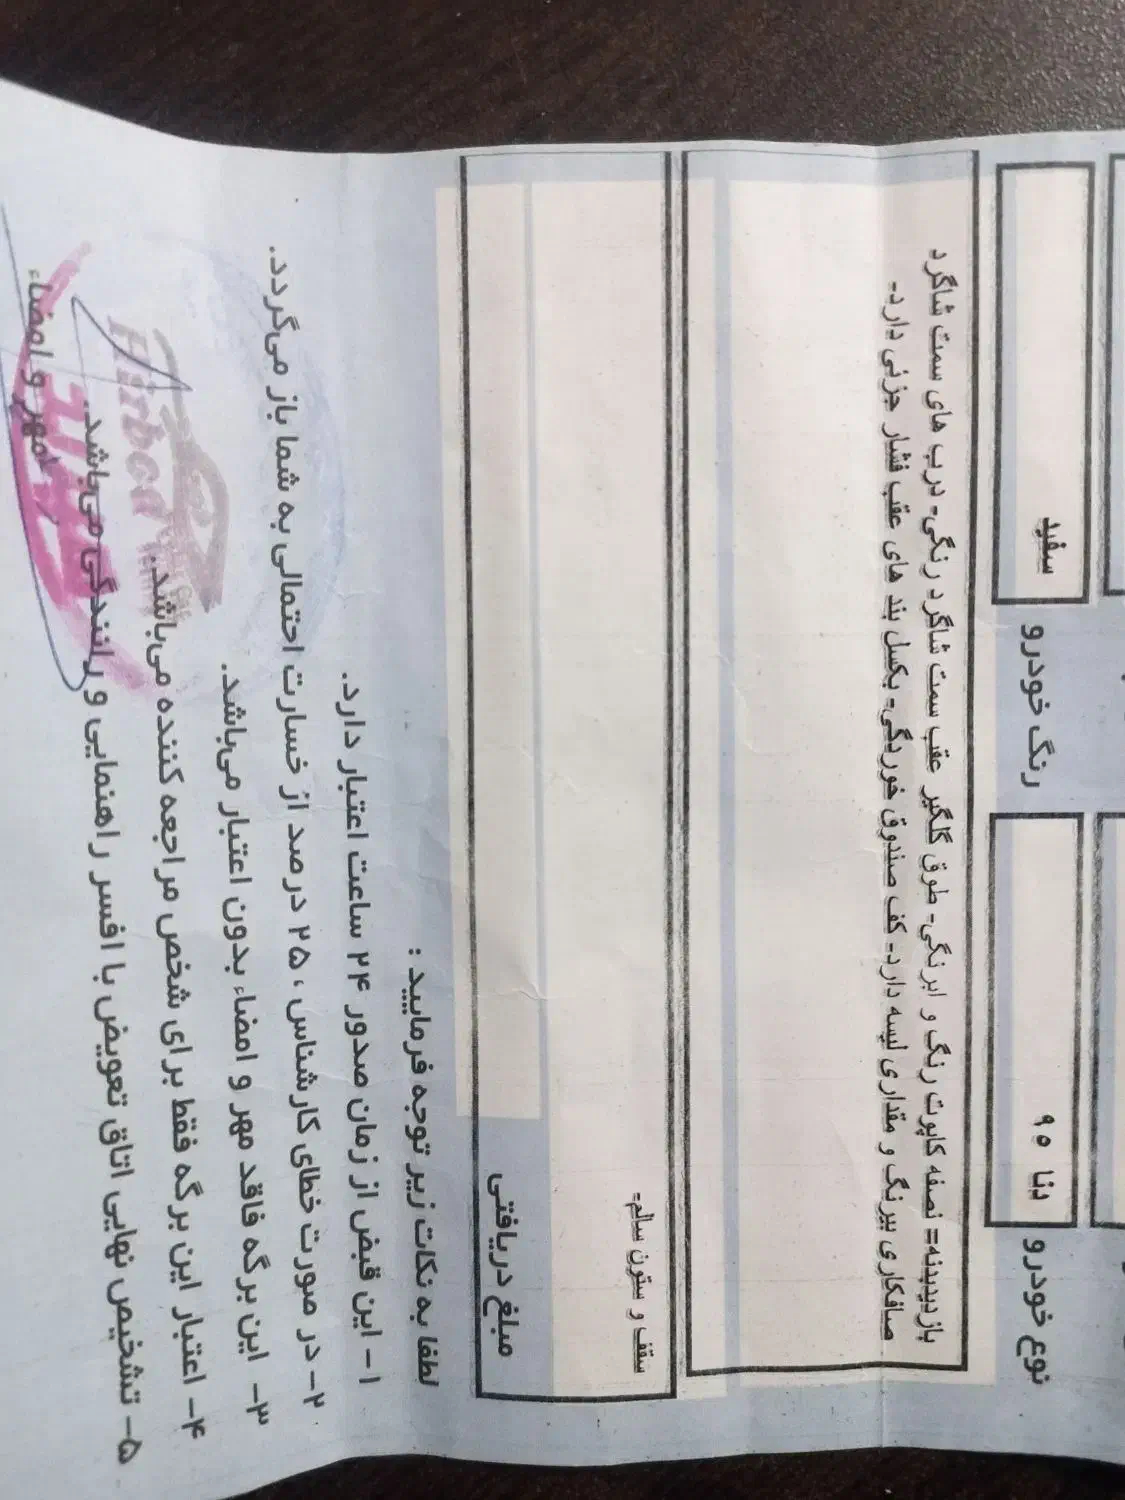 نوع خودرو دنا ۹۵ رنگ خودرو سفید
بازدیدبدنه= نصفه کاپوت رنگ و ابرنگی- طوق گلگیر عقب سمت شاگرد رنگی- درب های سمت شاگرد
صافکاری بیرنگ و مقداری لیسه دارد- کف صندوق خوردگی- بکسل بند های عقب فشار جزئی دارد-
سقف و ستون سالم-
مبلغ دریافتی
لطفا به نکات زیر توجه فرمایید :
۱- این قبض از زمان صدور ۲۴ ساعت اعتبار دارد.
۲- در صورت خطای کارشناس ، ۲۵ درصد از خسارت احتمالی به شما باز می‌گردد.
۳- این برگه فاقد مهر و امضاء بدون اعتبار می‌باشد.
۴- اعتبار این برگه فقط برای شخص مراجعه کننده می‌باشد.
۵- تشخیص نهایی اتاق تعویض با افسر راهنمایی و رانندگی می‌باشد.
مهر و امضاء